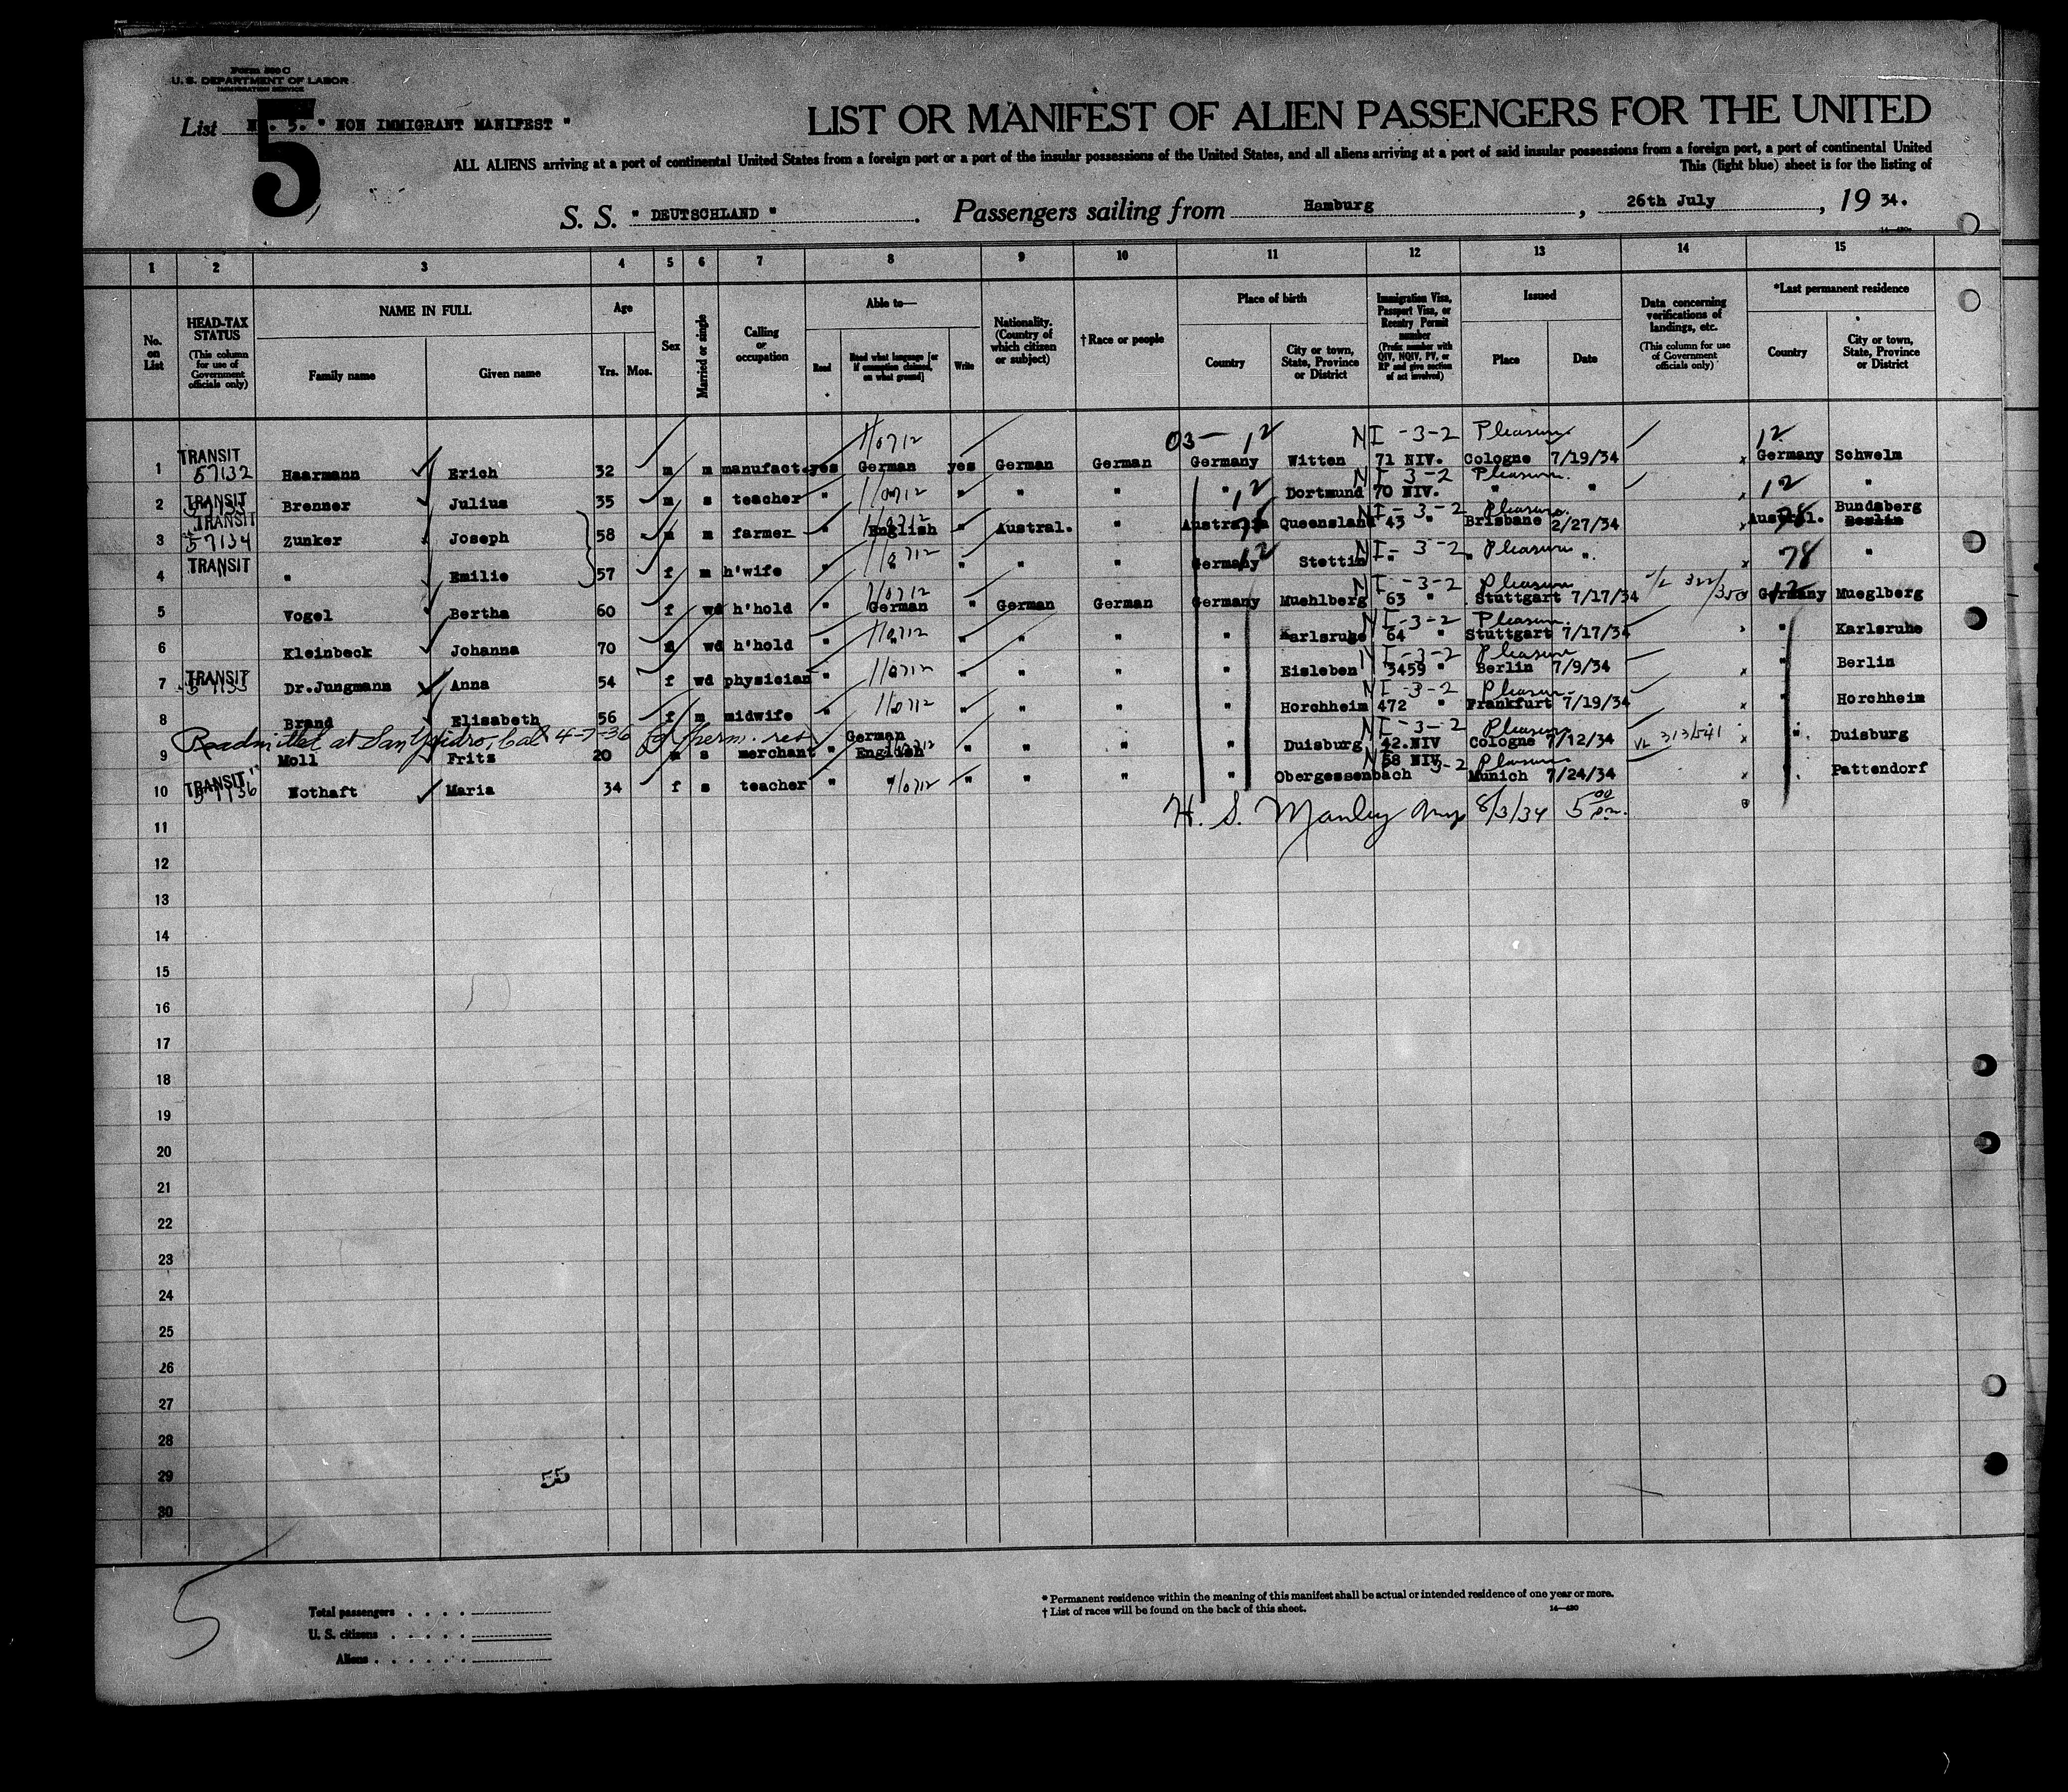 Form 500 C
U. S. DEPARTMENT OF LABOR
IMMIGRATION SERVICE
5
List No. 5. " NON IMMIGRANT MANIFEST "
LIST OR MANIFEST OF ALIEN PASSENGERS FOR THE UNITED
ALL ALIENS arriving at a port of continental United States from a foreign port or a port of the insular possessions of the United States, and all aliens arriving at a port of said insular possessions from a foreign port, a port of continental United
This (light blue) sheet is for the listing of
S. S. " DEUTSCHLAND " . Passengers sailing from Hamburg , 26th July , 19 34.
1 2 3 4 5 6 7 8 9 10 11 12 13 14 15
No. on List
HEAD-TAX STATUS (This column for use of Government officials only)
NAME IN FULL
Family name Given name
Age
Yrs. Mos.
Sex
Married or single
Calling or occupation
Able to—
Read Read what language [or if exemption claimed, on what ground] Write
Nationality. (Country of which citizen or subject)
† Race or people
Place of birth
Country City or town, State, Province or District
Immigration Visa, Passport Visa, or Reentry Permit number (Prefix number with QIV, NQIV, PV, or RP and give section of act involved)
Issued
Place Date
Data concerning verifications of landings, etc. (This column for use of Government officials only)
*Last permanent residence
Country City or town, State, Province or District
1/0712 03— 12 NI -3-2 Pleasure 12
1 TRANSIT 57132 Haarmann Erich 32 m m manufact. yes German yes German German Germany Witten 71 NIV. Cologne 7/19/34 x Germany Schwelm
NI -3-2 Pleasure.
2 TRANSIT Brenner Julius 35 m s teacher " 1/0712 " " " " 12 Dortmund 70 NIV. " " x 12 "
NI -3-2 Pleasure.
3 TRANSIT 57134 Zunker Joseph 58 m m farmer " English " Austral. " Australia 78 Queensland 43 " Brisbane 2/27/34 x Austral. 78 Bundsberg Berlin
NI -3-2 Pleasure
4 TRANSIT " Emilie 57 f m h'wife " " " " " Germany 12 Stettin " " " x 78 "
1/0712 NI -3-2 Pleasure
5 Vogel Bertha 60 f wd h'hold " German " German German Germany Muehlberg 63 " Stuttgart 7/17/34 Germany 12 Mueglberg
NI -3-2 Pleasure.
6 Kleinbeck Johanna 70 f wd h'hold " 1/0712 " " " " Karlsruhe 64 " Stuttgart 7/17/34 " Karlsruhe
NI -3-2 Pleasure
7 TRANSIT Dr.Jungmann Anna 54 f wd physician " 1/0712 " " " " Eisleben 3459 " Berlin 7/9/34 x " Berlin
NI -3-2 Pleasure
8 Brand Elisabeth 56 f m midwife " 1/0712 " " " " Horchheim 472 " Frankfurt 7/19/34 x " Horchheim
Readmitted at San Ysidro, Cal 4-7-36 for perm. res. German NI -3-2 Pleasure
9 Moll Frits 20 m s merchant " English " " " " Duisburg 42.NIV Cologne 7/12/34 VL 313/541 x " Duisburg
10 TRANSIT Nothaft Maria 34 f s teacher " 1/0712 " " " " Obergessenbach 58 NIV 3-2 Pleasure Munich 7/24/34 x Pattendorf
H. S. Manley 8/3/34 5 00 pm.
11
12
13
14
15
16
17
18
19
20
21
22
23
24
25
26
27
28
29 55
30
5
* Permanent residence within the meaning of this manifest shall be actual or intended residence of one year or more.
† List of races will be found on the back of this sheet. 14—430
Total passengers
U. S. citizens
Aliens